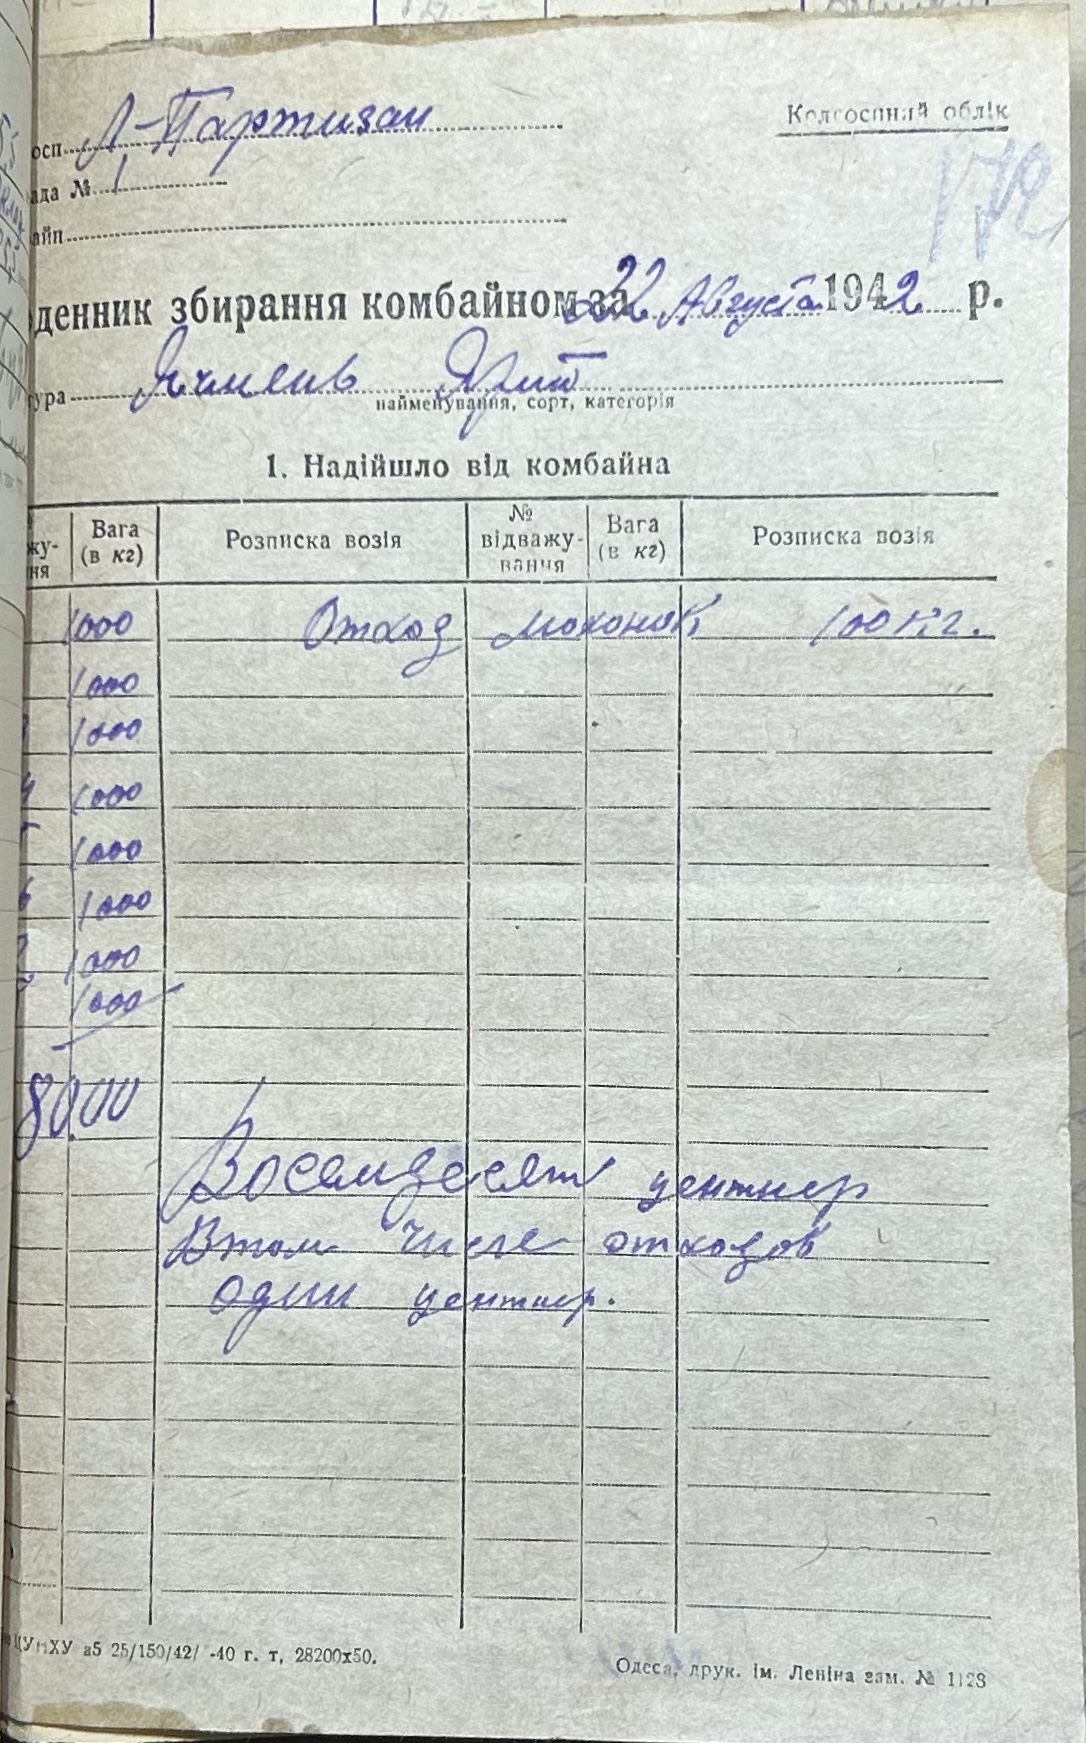 Колгоспний облік
осп. А-Партизан
172
ада № 1
айн
денник збирання комбайном за 22 Августа 1942 р.
тура Ячмень Ярий
найменування, сорт, категорія
1. Надійшло від комбайна
жу-ня Вага (в кг) Розписка возія № відважу-вання Вага (в кг) Розписка возія
1000 Отход 100 кг.
1000
1000
4 1000
5 1000
6 1000
7 1000
1000
8000
Восемдесят центнер
Втом числе отходов
один центнер.
ЦУНХУ а5 25/150/42/ -40 г. т, 28200х50.
Одеса, друк. ім. Леніна зам. № 1123